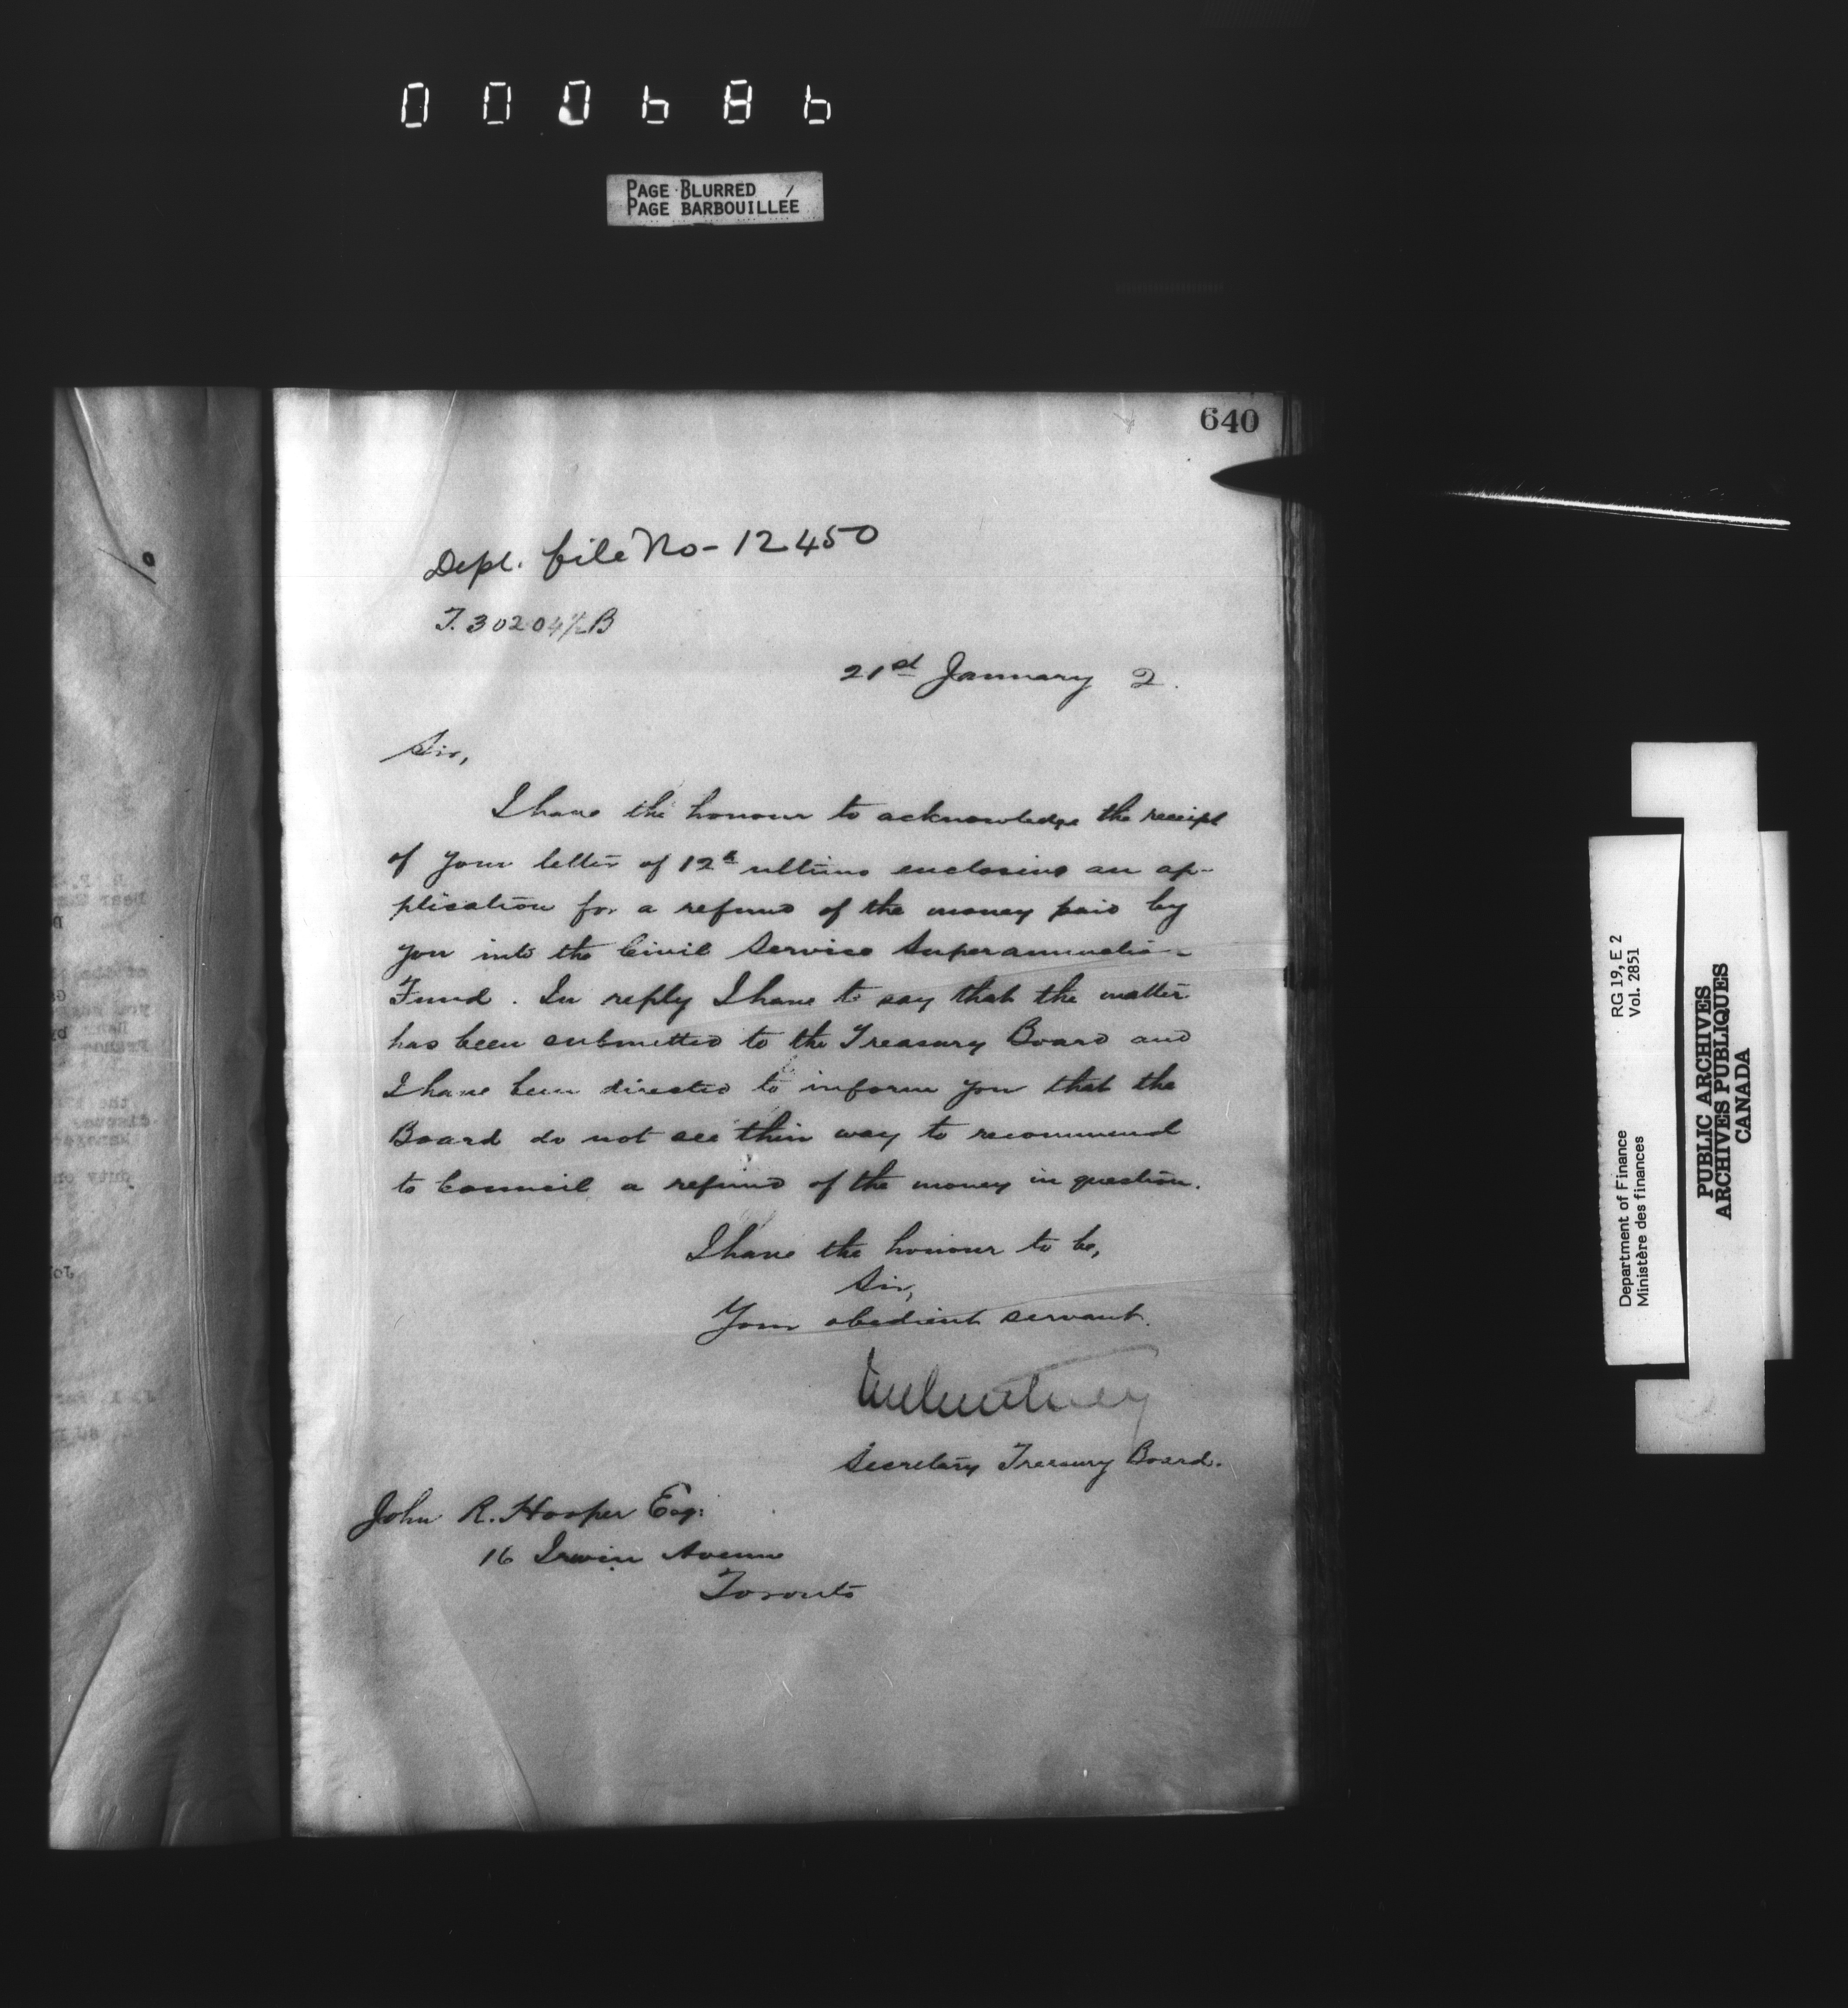 000686
PAGE BLURRED
PAGE BARBOUILLÉE
640
Dept. file No - 12450
T. 30204½B
21st January 2.
Sir,
I have the honour to acknowledge the receipt
of your letter of 12th ultimo enclosing an ap-
plication for a refund of the money paid by
you into the Civil Service Superannuation
Fund. In reply I have to say that the matter
has been submitted to the Treasury Board and
I have been directed to inform you that the
Board do not see their way to recommend
to Council a refund of the money in question.
I have the honour to be,
Sir,
Your obedient servant.
Secretary Treasury Board.
John R. Hooper Esq:
16 Irwin Avenue
Toronto
RG 19, E 2
Vol. 2851
Department of Finance
Ministère des finances
PUBLIC ARCHIVES
ARCHIVES PUBLIQUES
CANADA